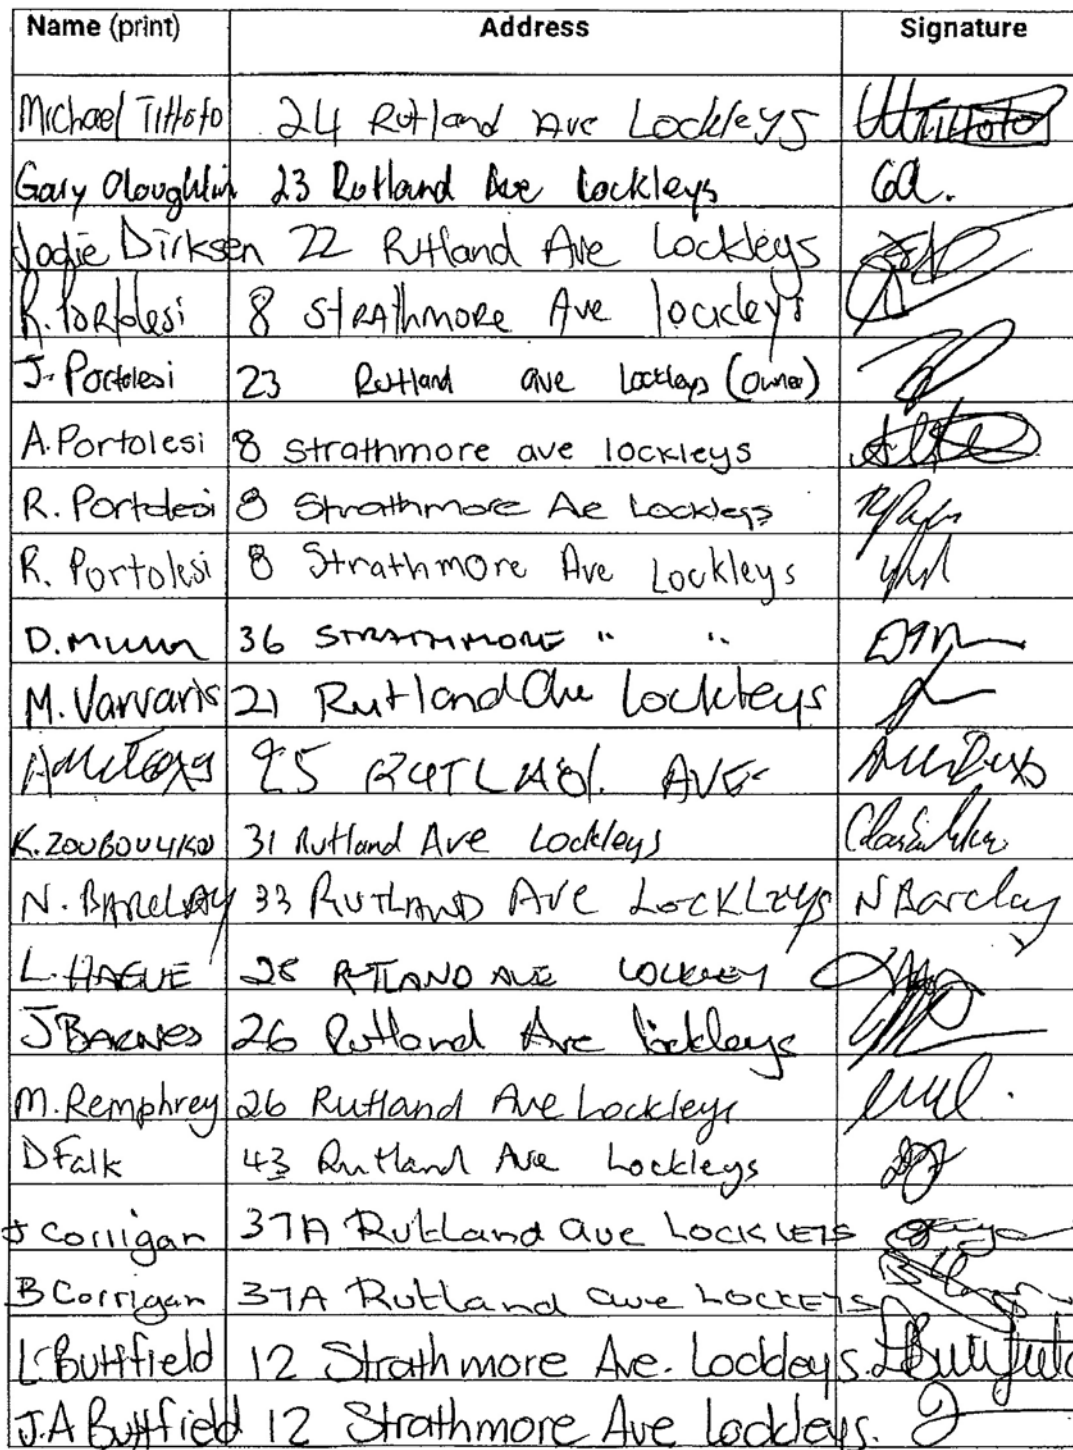 Name (print) Address Signature
Michael Tittoto 24 Rutland Ave Lockleys
Gary Oloughlin 23 Rutland Ave Lockleys GOL.
Jodie Dirksen 22 Rutland Ave Lockleys
R. Portolesi 8 Strathmore Ave lockleys
J. Portolesi 23 Rutland ave Lockleys (owner)
A. Portolesi 8 Strathmore ave lockleys
R. Portolesi 8 Strathmore Ae Lockleys
R. Portolesi 8 Strathmore Ave Lockleys
D. Munn 36 STRATHMORE " "
M. Varvaris 21 Rutland Ave Lockleys
25 RUTLAND. AVE
31 Rutland Ave Lockleys
N. BARCLAY 33 RUTLAND AVE LOCKLEYS N Barclay
L. HAGUE 28 RUTLAND AVE LOCKLEY
J BARNES 26 Rutland Ave lockleys
M. Remphrey 26 Rutland Ave Lockleys
D Falk 43 Rutland Ave Lockleys
J Corrigan 37A Rutland ave LOCKLEYS
B Corrigan 37A Rutland ave LOCKLEYS
L. Buttfield 12 Strathmore Ave. Lockleys. L Buttfield
J.A Buttfield 12 Strathmore Ave Lockleys.